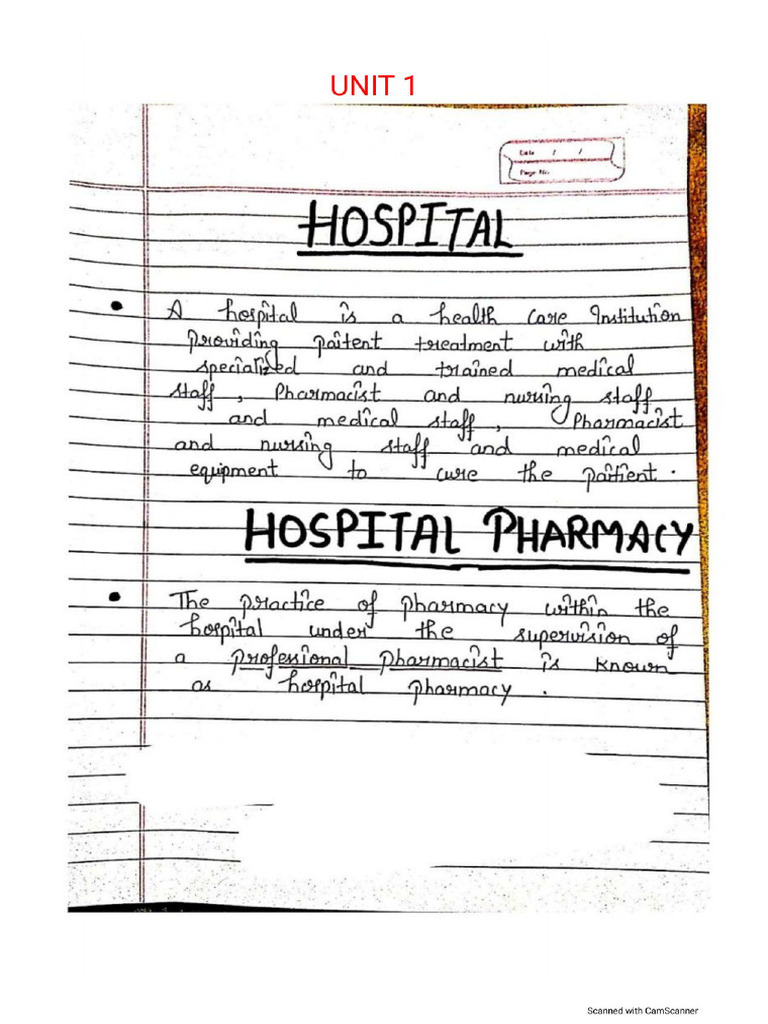 UNIT 1
Date / /
Page No.
HOSPITAL
• A hospital is a health care Institution
providing paitent treatment with
specialized and trained medical
staff, Pharmacist and nursing staff
and medical staff, Pharmacist
and nursing staff and medical
equipment to cure the paitient.
HOSPITAL PHARMACY
• The practice of pharmacy within the
hospital under the supervision of
a professional pharmacist is known
as hospital pharmacy.
Scanned with CamScanner